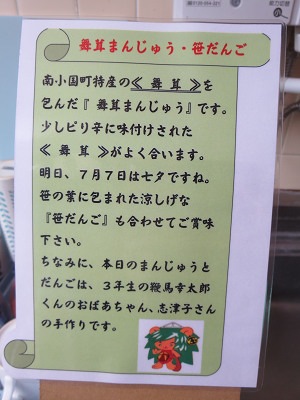 舞茸まんじゅう・笹だんご
南小国町特産の≪ 舞 茸 ≫を
包んだ『 舞茸まんじゅう』です。
少しピリ辛に味付けされた
≪ 舞 茸 ≫がよく合います。
明日、７月７は七夕ですね。
笹の葉に包まれた涼しげな
『笹だんご』も合わせてご賞味
下さい。
ちなみに、本日のまんじゅうと
だんごは、３年生の鞭馬幸太郎
くんのおばあちゃん、志津子さん
の手作りです。